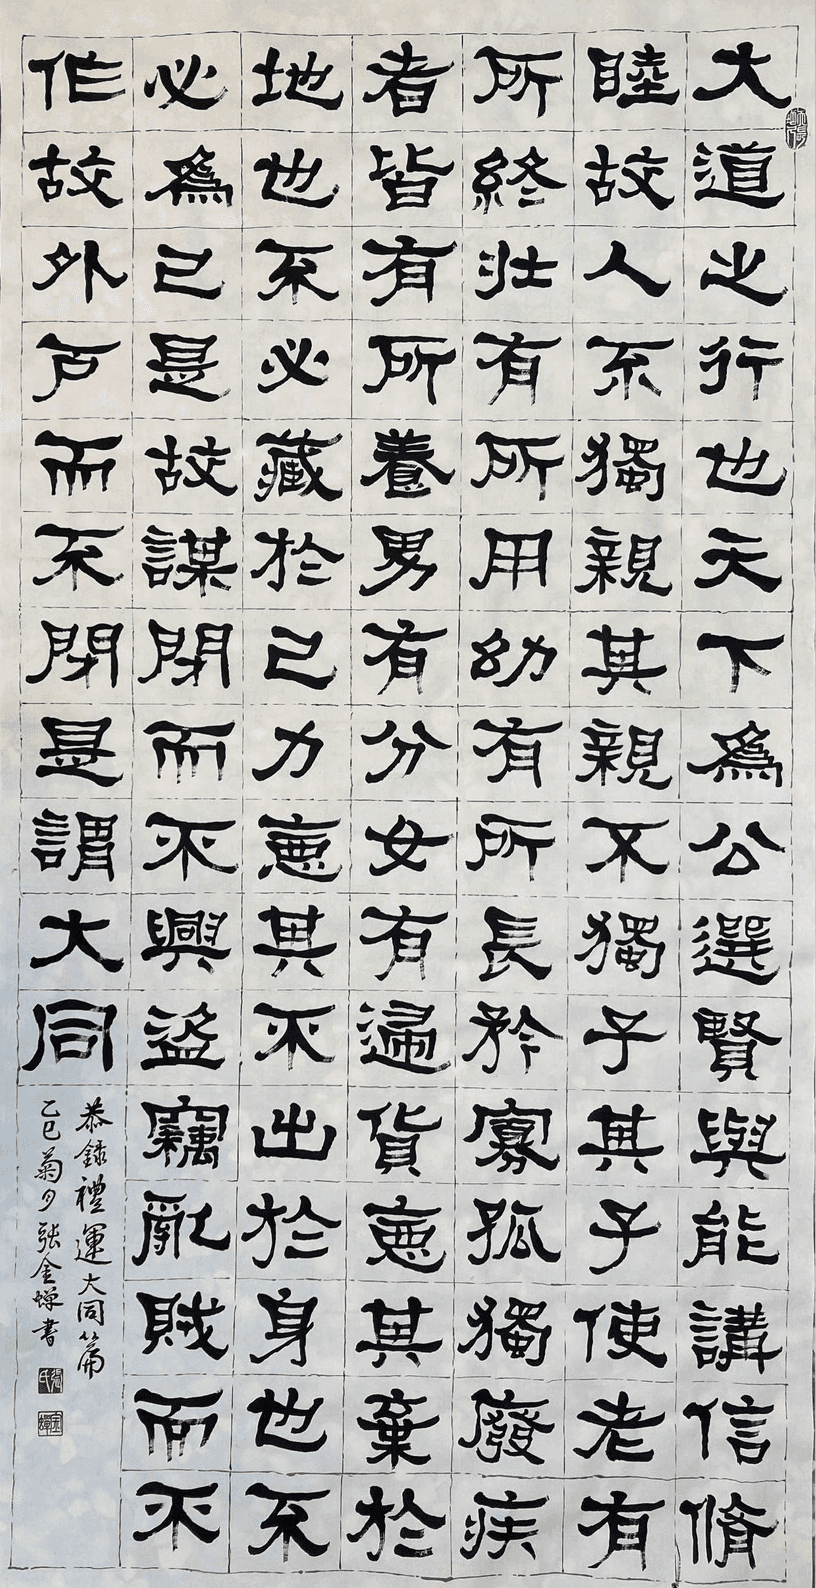 大道之行也天下爲公選賢與能講信脩
睦故人不獨親其親不獨子其子使老有
所終壯有所用幼有所長矜寡孤獨廢疾
者皆有所養男有分女有歸貨惡其棄於
地也不必藏於己力惡其不出於身也不
必爲己是故謀閉而不興盜竊亂賊而不
作故外戶而不閉是謂大同
恭錄禮運大同篇
乙巳菊月張金蟬書
張氏
金蟬